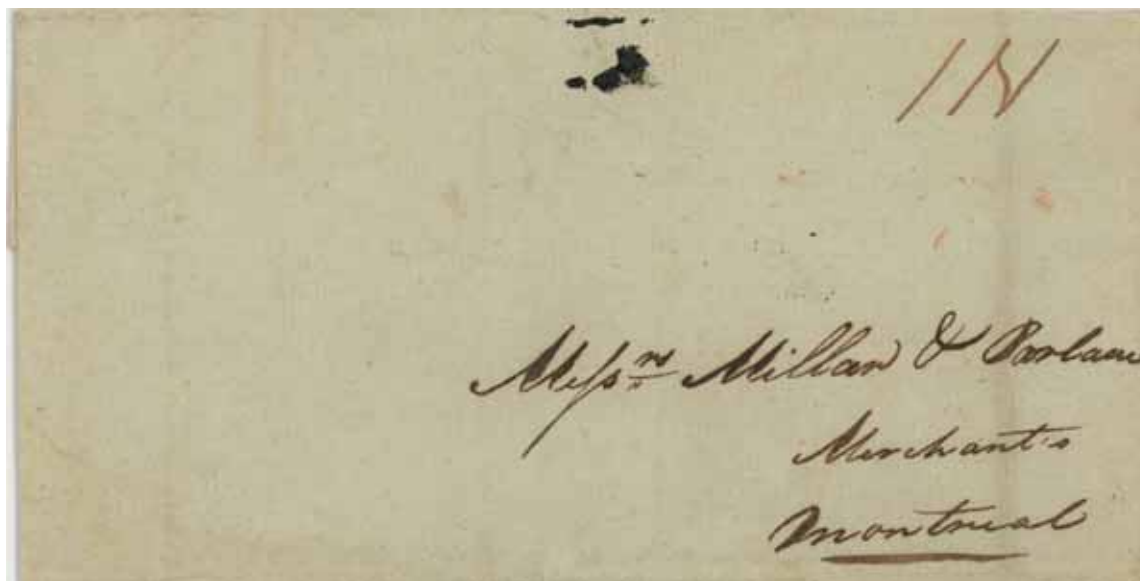 1N
Messrs Millar & Parlane
Merchant's
Montreal